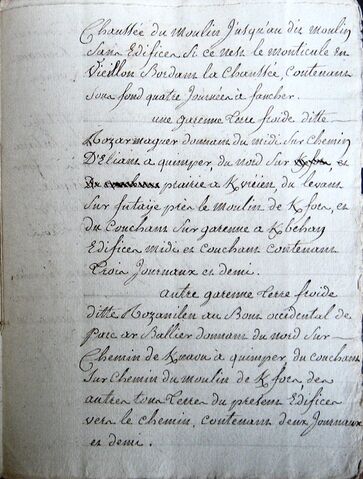 Chaussée du moulin jusqu'au dis moulin
sans Edifices si ce nest le monticule ou
Vieillon Bordant la chaussée, contenant
sous fond quatre Journées a faucher.
une garenne Terre froide ditte
Rozarmaguer donnant du midi sur Chemin
D'Elians a quimper, du nord sur et
prairie a Kvrien, du levant
sur futaye près le moulin de Kfors, et
du Couchant sur garenne a Kbehan
Edifices midi et couchant contenant
Trois Journaux et demi.
autre garenne Terre froide
ditte Rozanilen au Bout occidental de
Parc ar Ballier donnant du nord sur
Chemin de Knaou a quimper, du couchant
sur Chemin du moulin de Kfors, des
autres tous Terres du present Edifices
vers le chemin, contenant deux Journaux
et demi.